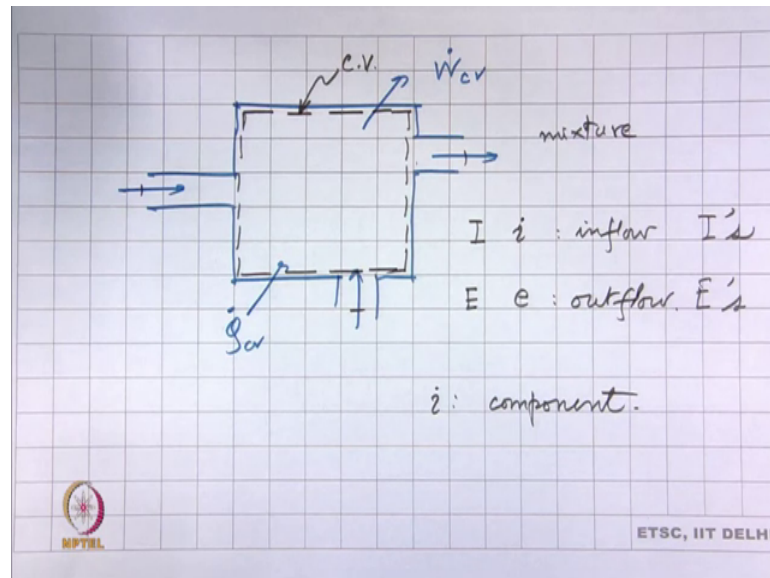 C.V.
Ẇcv
mixture
I i : inflow I's
E e : outflow. E's
Q̇cv
i : component.
NPTEL
ETSC, IIT DELH